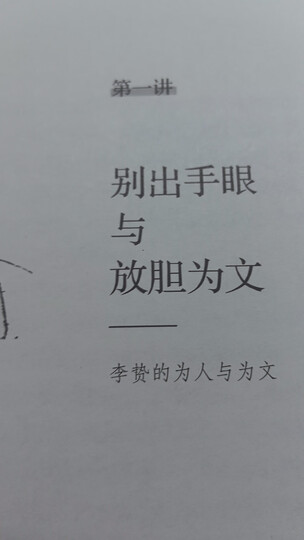 第一讲
别出手眼
与
放胆为文
李贽的为人与为文